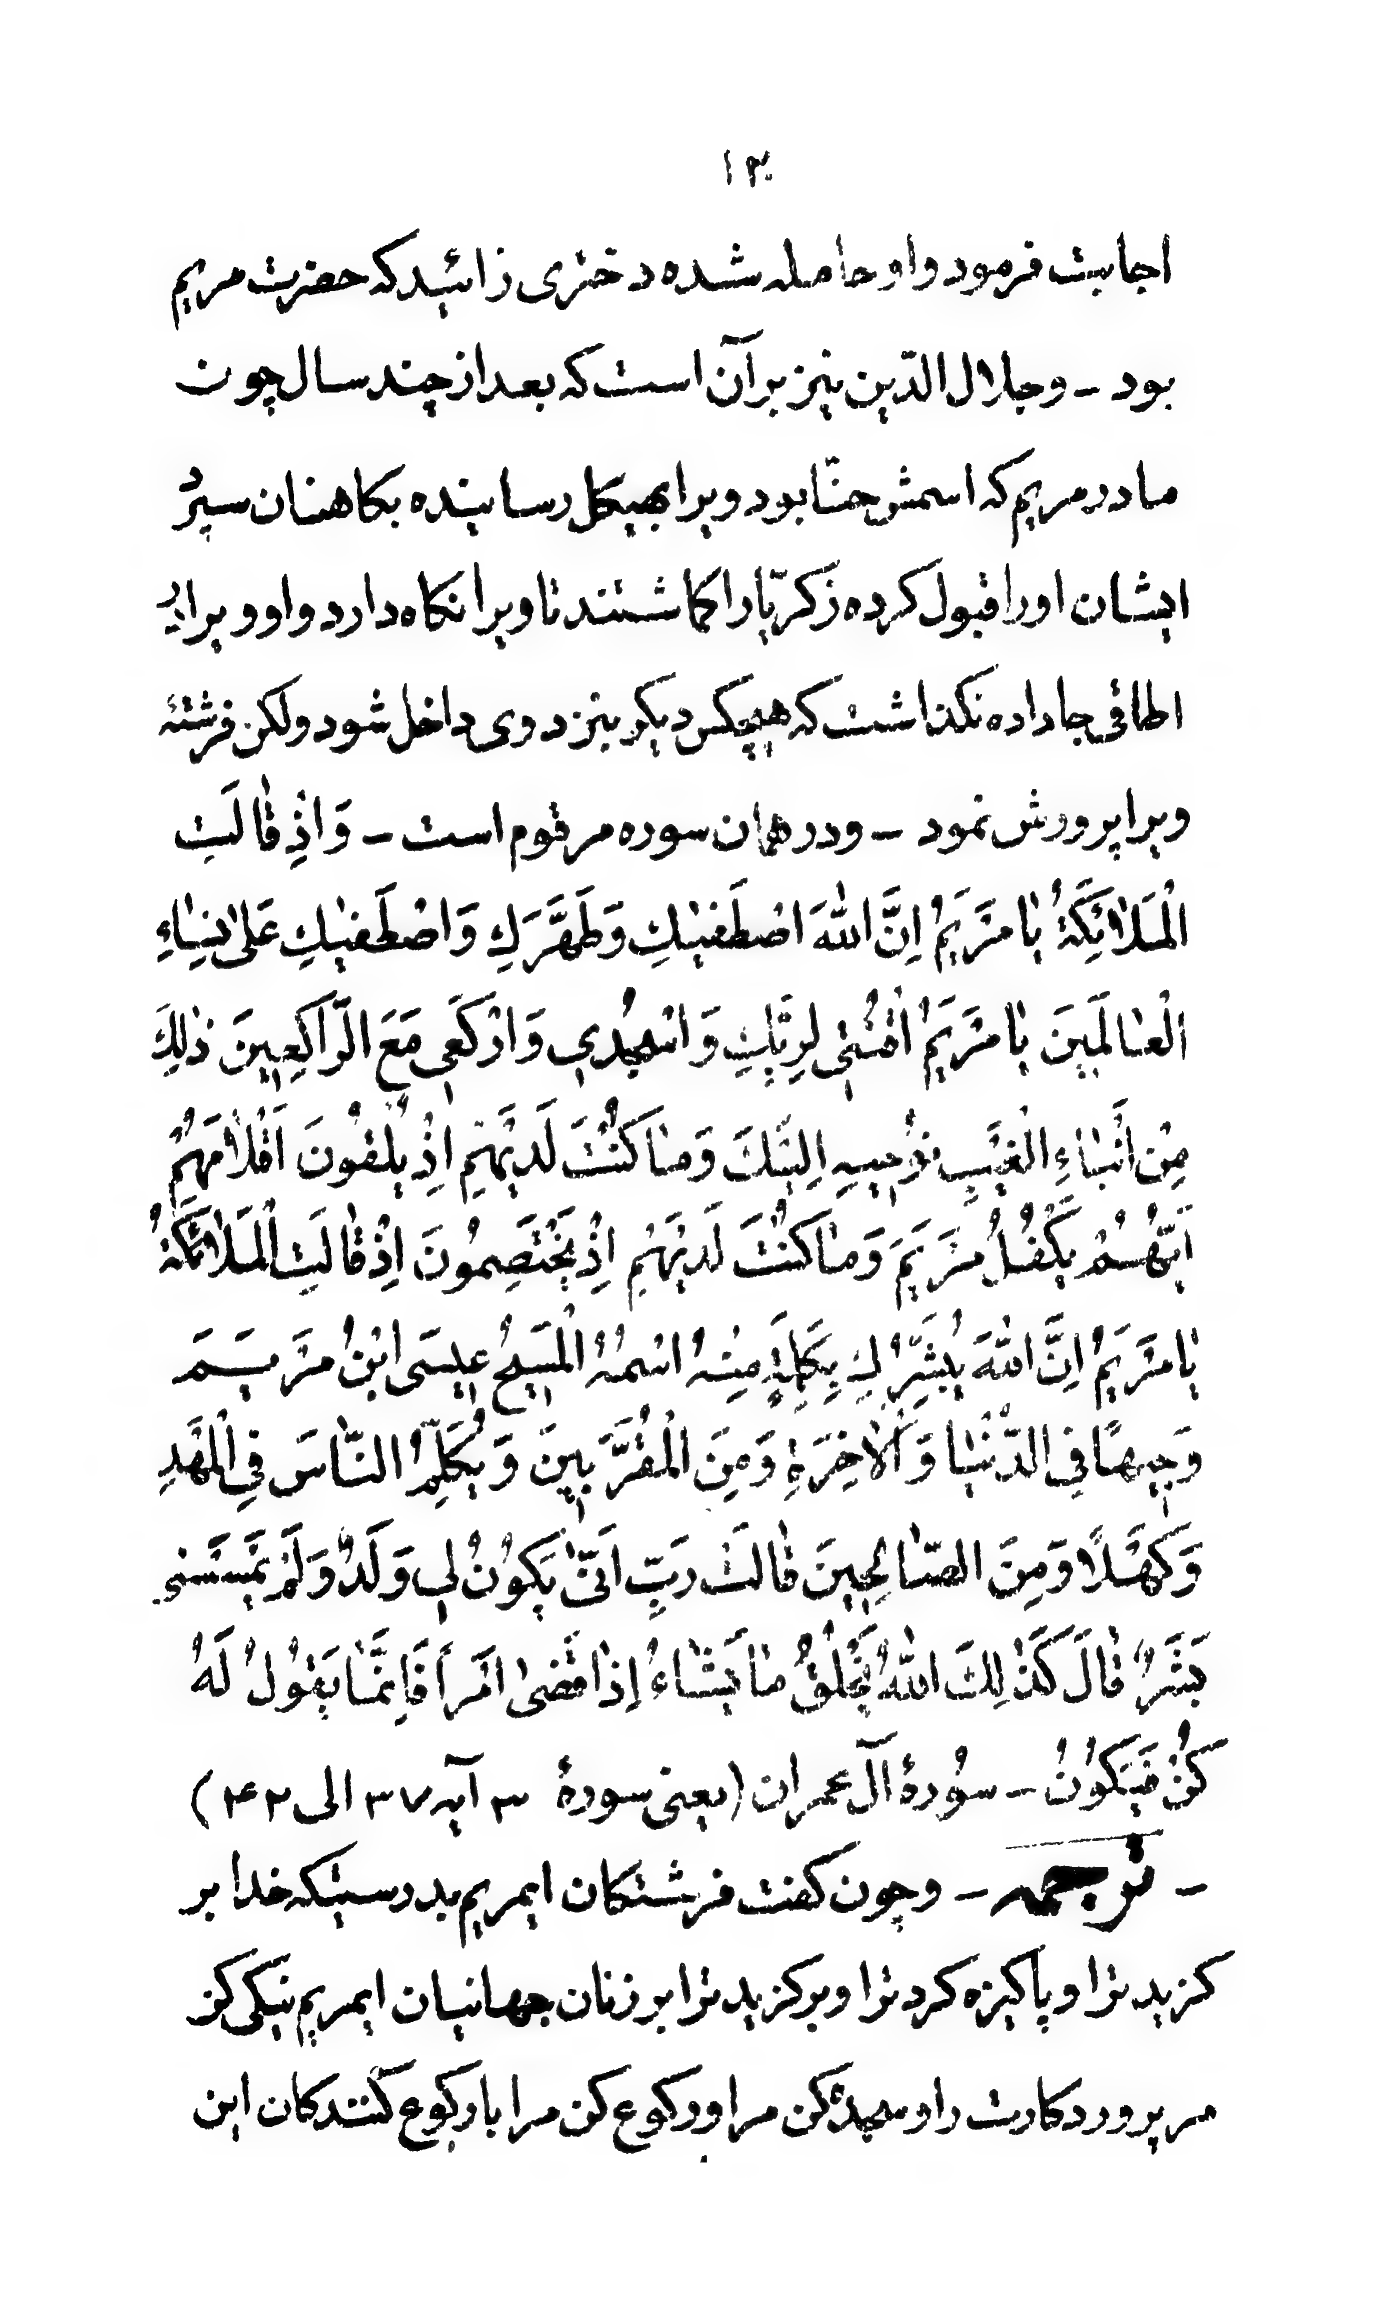 ١٣
اجابت فرمود و او حامله شده دختری زائید که حضرت مریم
بود – و جلال الدّین نیز بر آن است که بعد از چند سال چون
مادر مریم که اسمش حنّا بود ویرا بهیکل رسانیده بکاهنان سپرد
ایشان او را قبول کرده زکریّا را کماشتند تا ویرا نکاه دارد و او ویرا در
اطاقی جا داده نکذاشت که هیچکس دیکر بنزد وی داخل شود ولکن فرشتهٔ
ویرا پرورش نمود – و در همان سوره مرقوم است – وَاِذْ قٰالَتِ
الْمَلاٰئِكَةُ يٰا مَرْيَمُ اِنَّ اللّٰهَ اصْطَفٰيكِ وَطَهَّرَكِ وَاصْطَفٰيكِ عَلىٰ نِسٰاءِ
الْعٰالَمِينَ يٰا مَرْيَمُ اقْنُتِى لِرَبِّكِ وَاسْجُدِي وَارْكَعِي مَعَ الرّٰاكِعِينَ ذٰلِكَ
مِنْ أَنْبٰاءِ الْغَيْبِ نُوحِيهِ اِلَيْكَ وَمٰا كُنْتَ لَدَيْهِمْ اِذْ يُلْقُونَ اَقْلاٰمَهُمْ
اَيُّهُمْ يَكْفُلُ مَرْيَمَ وَمٰا كُنْتَ لَدَيْهِمْ اِذْ يَخْتَصِمُونَ اِذْ قٰالَتِ الْمَلاٰئِكَةُ
يٰا مَرْيَمُ اِنَّ اللّٰهَ يُبَشِّرُكِ بِكَلِمَةٍ مِنْهُ اسْمُهُ الْمَسِيحُ عِيسَى ابْنُ مَرْيَمَ
وَجِيهًا فِى الدُّنْيٰا وَالْاٰخِرَةِ وَمِنَ الْمُقَرَّبِينَ وَيُكَلِّمُ النّٰاسَ فِي الْمَهْدِ
وَكَهْلًا وَمِنَ الصّٰالِحِينَ قٰالَتْ رَبِّ اَنّٰى يَكُونُ لِي وَلَدٌ وَلَمْ يَمْسَسْنِي
بَشَرٌ قٰالَ كَذٰلِكَ اللّٰهُ يَخْلُقُ مٰا يَشٰاءُ اِذٰا قَضىٰ اَمْراً فَاِنَّمٰا يَقُولُ لَهُ
كُنْ فَيَكُونُ – سُورهٔ آل عمران (یعنی سورهٔ ٣ آیه ٣٧ الی ٤٢)
– ترجمه – و چون کفت فرشتکان ایمریم بدرستیکه خدا بر
کزید ترا و پاکیزه کرد ترا و برکزید ترا بر زنان جهانیان ایمریم نیکی کن
مر پروردکارت را و سجدهٔ کن مر او را و رکوع کن مر او را با رکوع کنندکان این